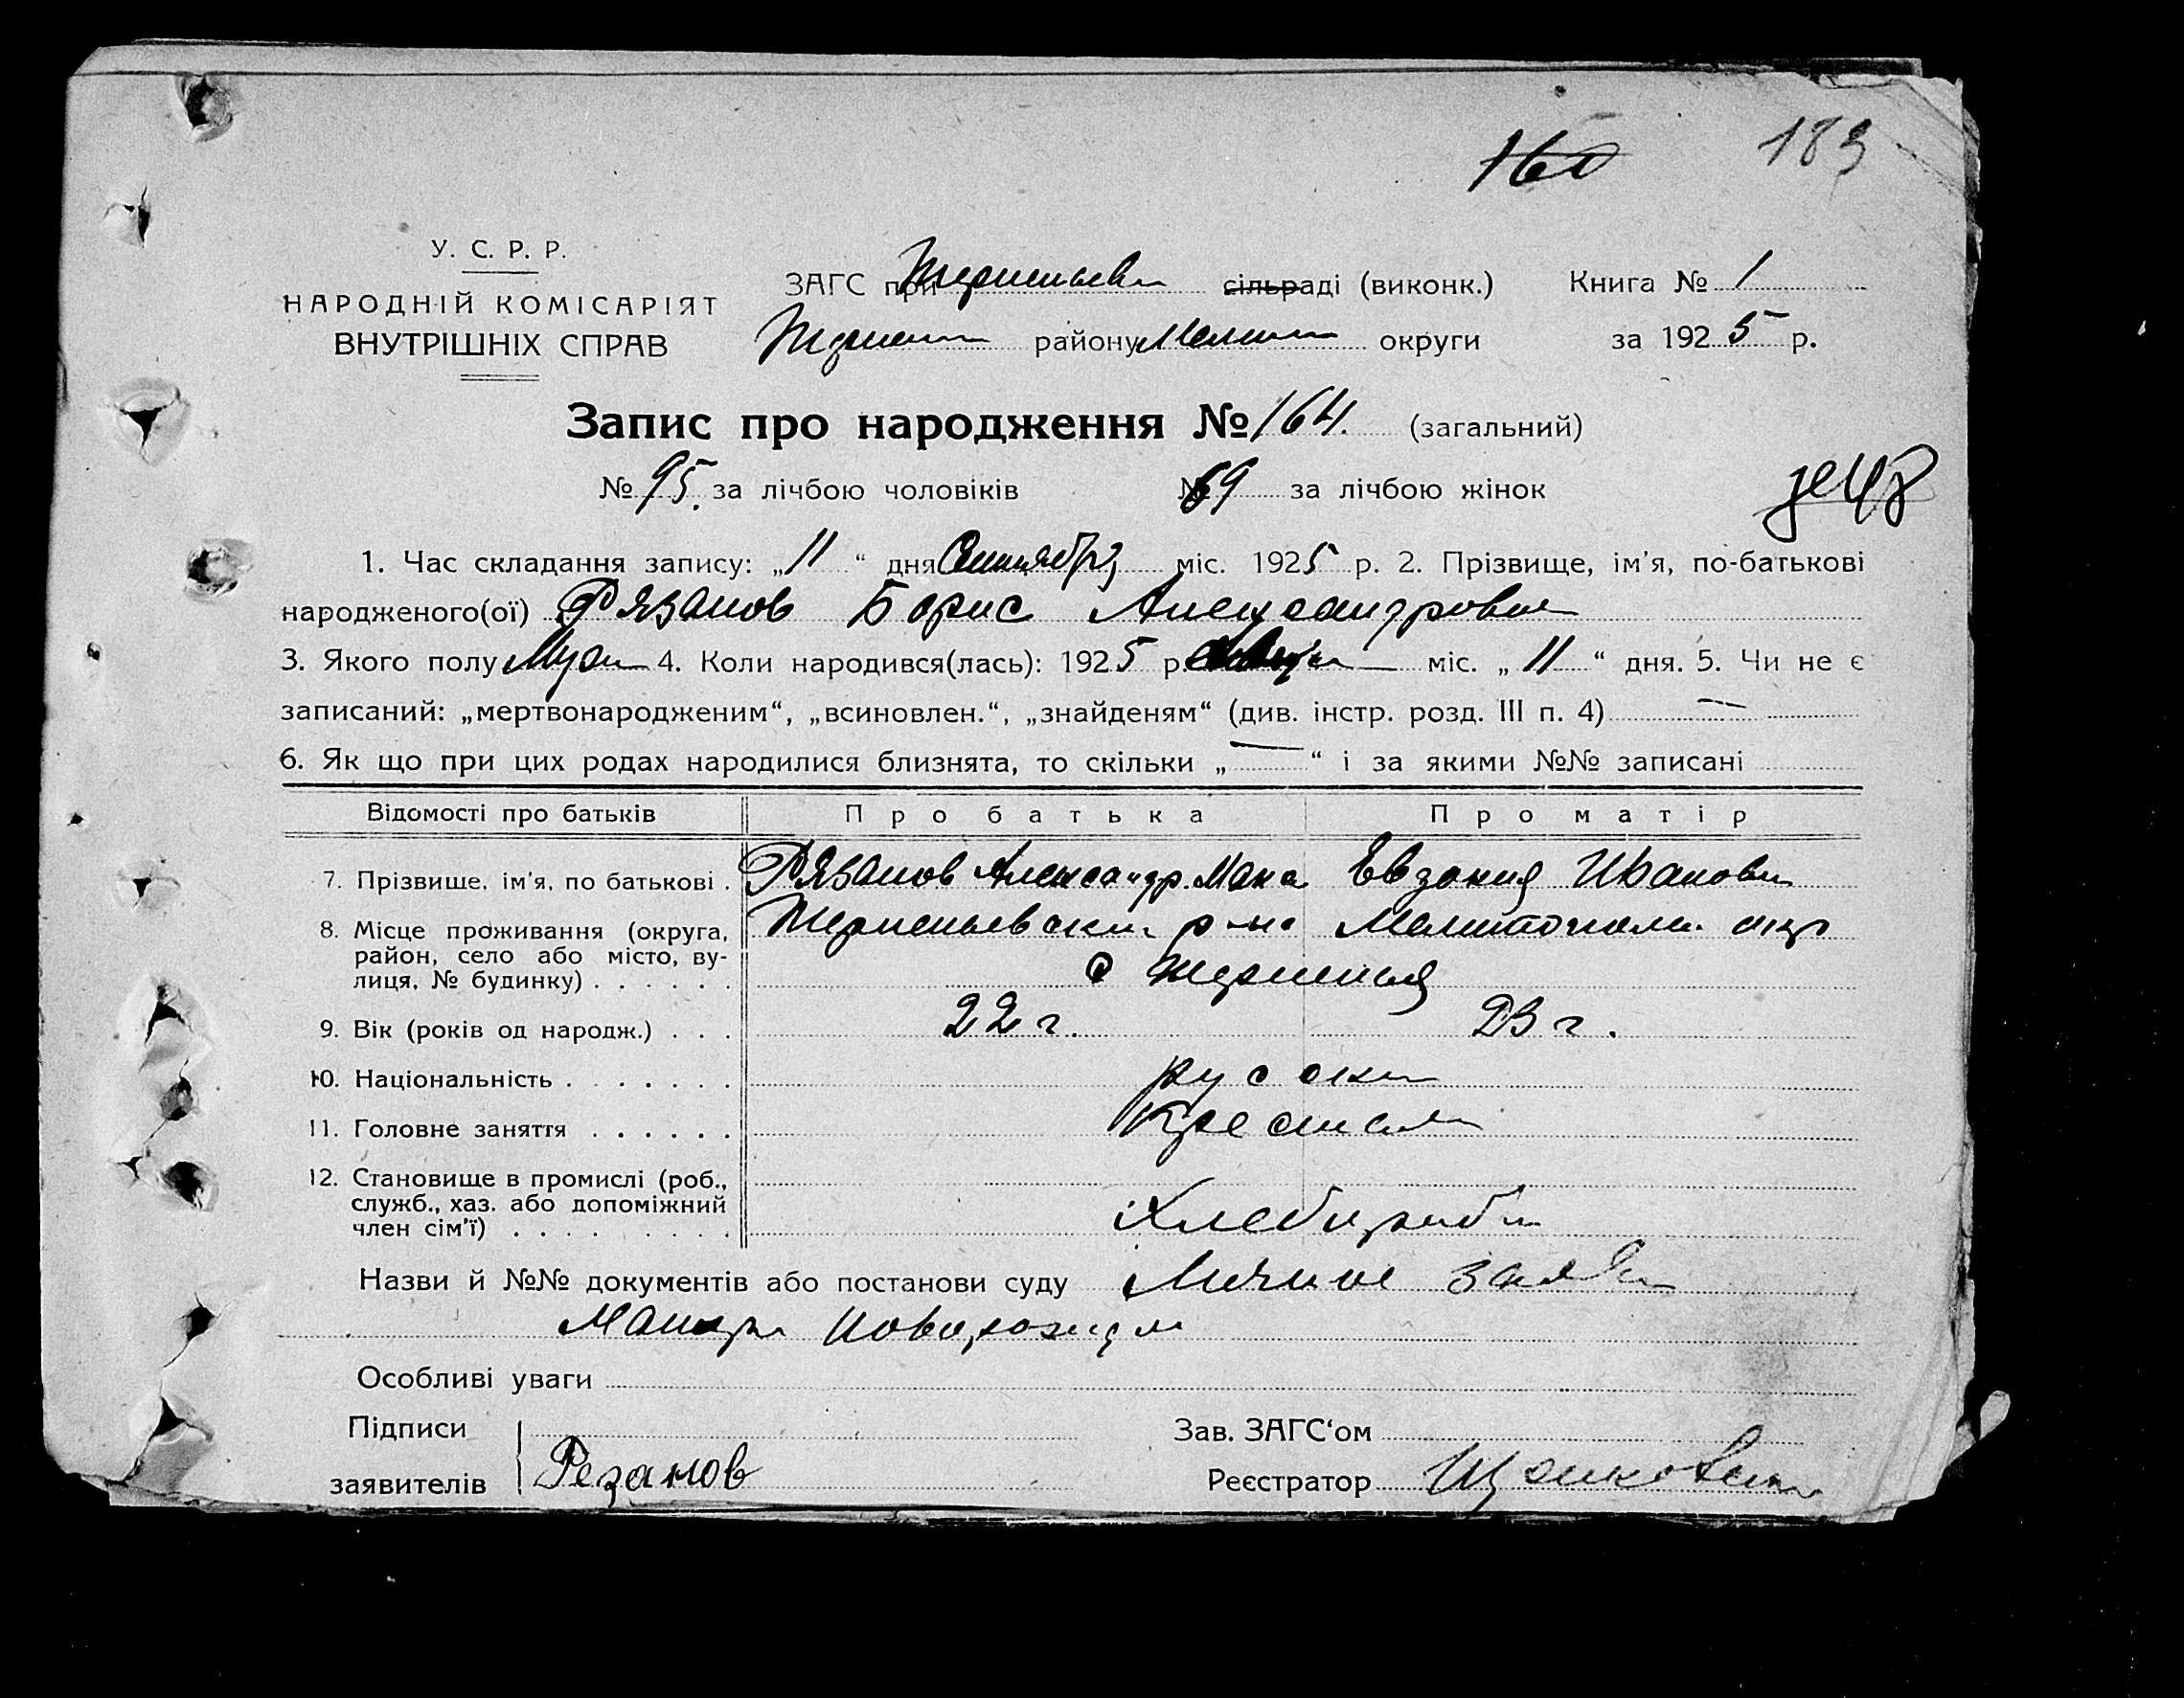 160 183
У. С. Р. Р.
НАРОДНІЙ КОМІСАРІЯТ
ВНУТРІШНІХ СПРАВ
ЗАГС при сільраді (виконк.) Книга № 1
району округи за 1925 р.
Запис про народження № 164. (загальний)
№ 95. за лічбою чоловіків № 69 за лічбою жінок
1. Час складання запису: „11“ дня Сентября міс. 1925 р. 2. Прізвище, ім'я, по-батькові
народженого(ої) Рязанов Борис Александрович
3. Якого полу Муж 4. Коли народився(лась): 1925 р. міс. „11“ дня. 5. Чи не є
записаний: „мертвонародженим“, „всиновлен.“, „знайденям“ (див. інстр. розд. III п. 4) —
6. Як що при цих родах народилися близнята, то скільки „—“ і за якими №№ записані
Відомості про батьків Про батька Про матір
7. Прізвище, ім'я, по батькові . Рязанов Александр. Мака Евдокия Иванови
8. Місце проживання (округа, р-на Мелитополь. окр
район, село або місто, ву-
лиця, № будинку) . . . . . . с
9. Вік (років од народж.) . . . 22 г. 23 г.
10. Національність . . . . . . . русски
11. Головне заняття . . . . . . Крестьян
12. Становище в промислі (роб.,
служб., хаз. або допоміжний Хлебороб
член сім'ї) . . . . . . . . .
Назви й №№ документів або постанови суду Личное заяв
Матери новорожд
Особливі уваги
Підписи Зав. ЗАГС'ом
заявителів Резанов Реєстратор